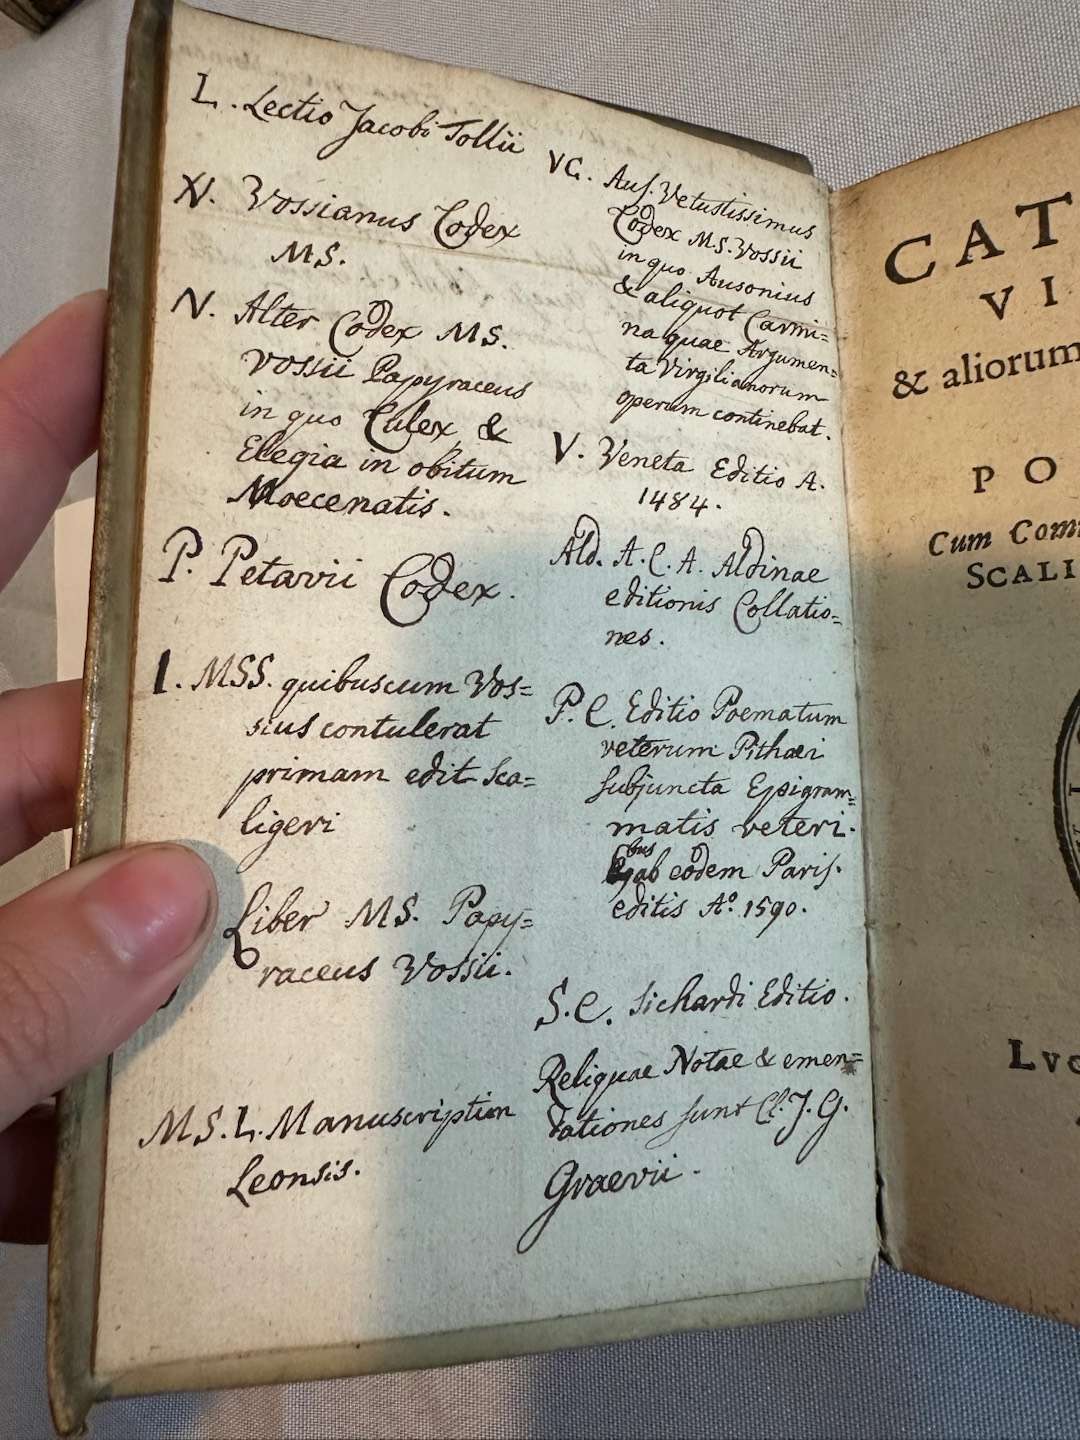 L. Lectio Jacobi Tollii
W. Vossianus Codex
MS.
N. Alter Codex MS.
Vossii Papyraceus
in quo Culex &
Elegia in obitum
Moecenatis.
P. Petavii Codex.
I. MSS. quibuscum Vos=
sius contulerat
primam edit Sca=
ligeri
Liber MS. Papy=
raceus Vossii.
MS. L. Manuscriptum
Leonsis.
VC. Aus. Vetustissimus
Codex MS. Vossii
in quo Ausonius
& aliquot Carmi=
na quae Argumen=
ta Virgilianorum
operum continebat.
V. Veneta Editio A.
1484.
Ald. A. C. A. Aldinae
editionis Collatio=
nes.
P. C. Editio Poematum
veterum Pithaei
subjuncta Epigram=
matis veteri.
bus
ab eodem Paris.
editis Aº. 1590.
S. C. Sichardi Editio.
Reliquae Notae & emen=
dationes sunt Cl. J. G.
Graevii.
CAT
VI
& aliorum
PO
Cum Com
SCALI
LVG